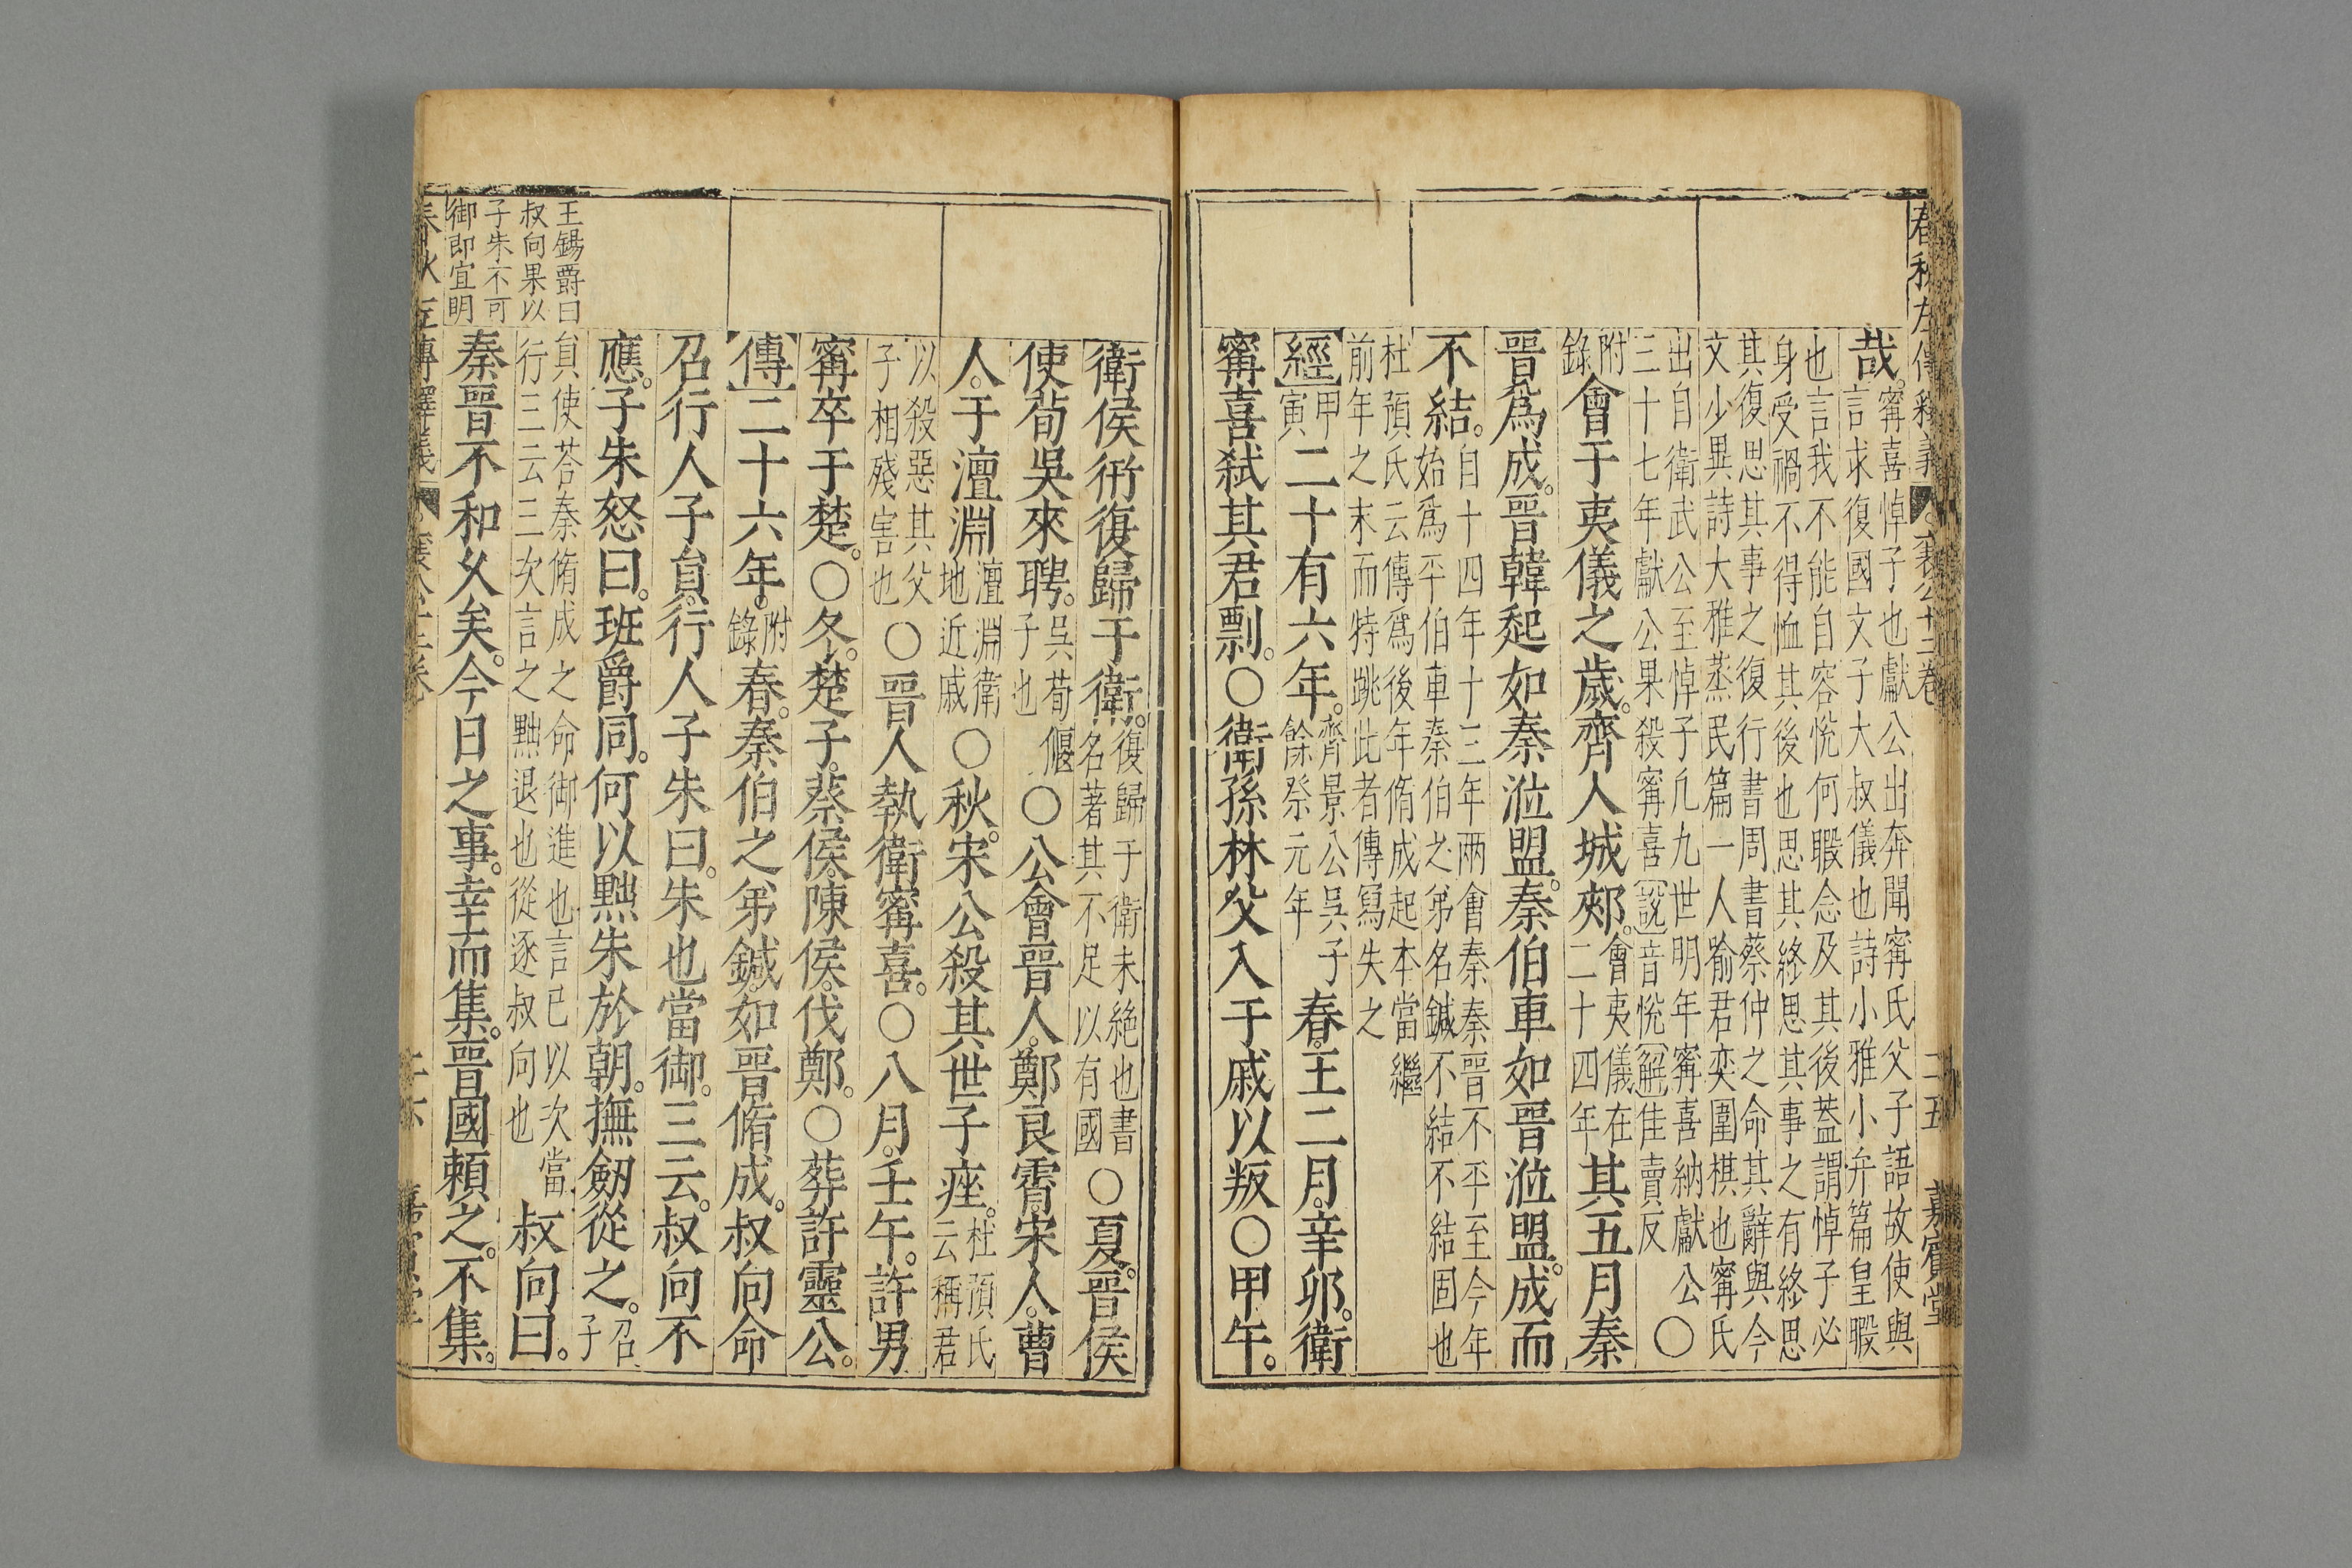 哉。寗喜悼子也獻公出奔聞寗氏父子語故使與
言求復國文子大叔儀也詩小雅小弁篇皇暇
也言我不能自容悅何暇念及其後蓋謂悼子必
身受禍不得恤其後也思其終思其事之有終思
其復思其事之復行書周書蔡仲之命其辭與今
文少異詩大雅蒸民篇一人喻君奕圍棋也寗氏
出自衛武公至悼子凡九世明年寗喜納獻公
三十七年獻公果殺寗喜〔說〕音悅〔解〕佳賣反 〇
附錄會于夷儀之歲。齊人城郟。會夷儀在二十四年其五月秦
晉爲成。晉韓起如秦涖盟。秦伯車如晉涖盟。成而
不結。自十四年十三年兩會秦秦晉不平至今年
始爲平伯車秦伯之弟名鍼不結不結固也
杜預氏云傳爲後年脩成起本當繼
前年之末而特跳此者傳寫失之
【經】甲寅二十有六年。齊景公吳子餘祭元年春王二月。辛卯。衛
寗喜弑其君剽。〇衛孫林父入于戚以叛〇甲午。
衛侯衎復歸于衛。復歸于衛未絶也書名著其不足以有國〇夏。晉侯
使荀吳來聘。吳荀偃子也〇公會晉人。鄭良霄。宋人。曹
人。于澶淵澶淵衛地近戚〇秋。宋公殺其世子痤。杜預氏云稱君
以殺惡其父子相殘害也〇晉人執衛寗喜。〇八月。壬午。許男
寗卒于楚。〇冬。楚子。蔡侯。陳侯。伐鄭。〇葬許靈公。
【傳】二十六年。附錄春。秦伯之弟鍼。如晉脩成。叔向命
召行人子員。行人子朱曰。朱也當御。三云。叔向不
應。子朱怒曰。班爵同。何以黜朱於朝。撫劒從之。召子
員使荅秦脩成之命御進也言已以次當
行三云三次言之黜退也從逐叔向也叔向曰。
秦晉不和久矣。今日之事。幸而集。晉國賴之。不集。
王錫爵曰
叔向果以
子朱不可
御即宜明